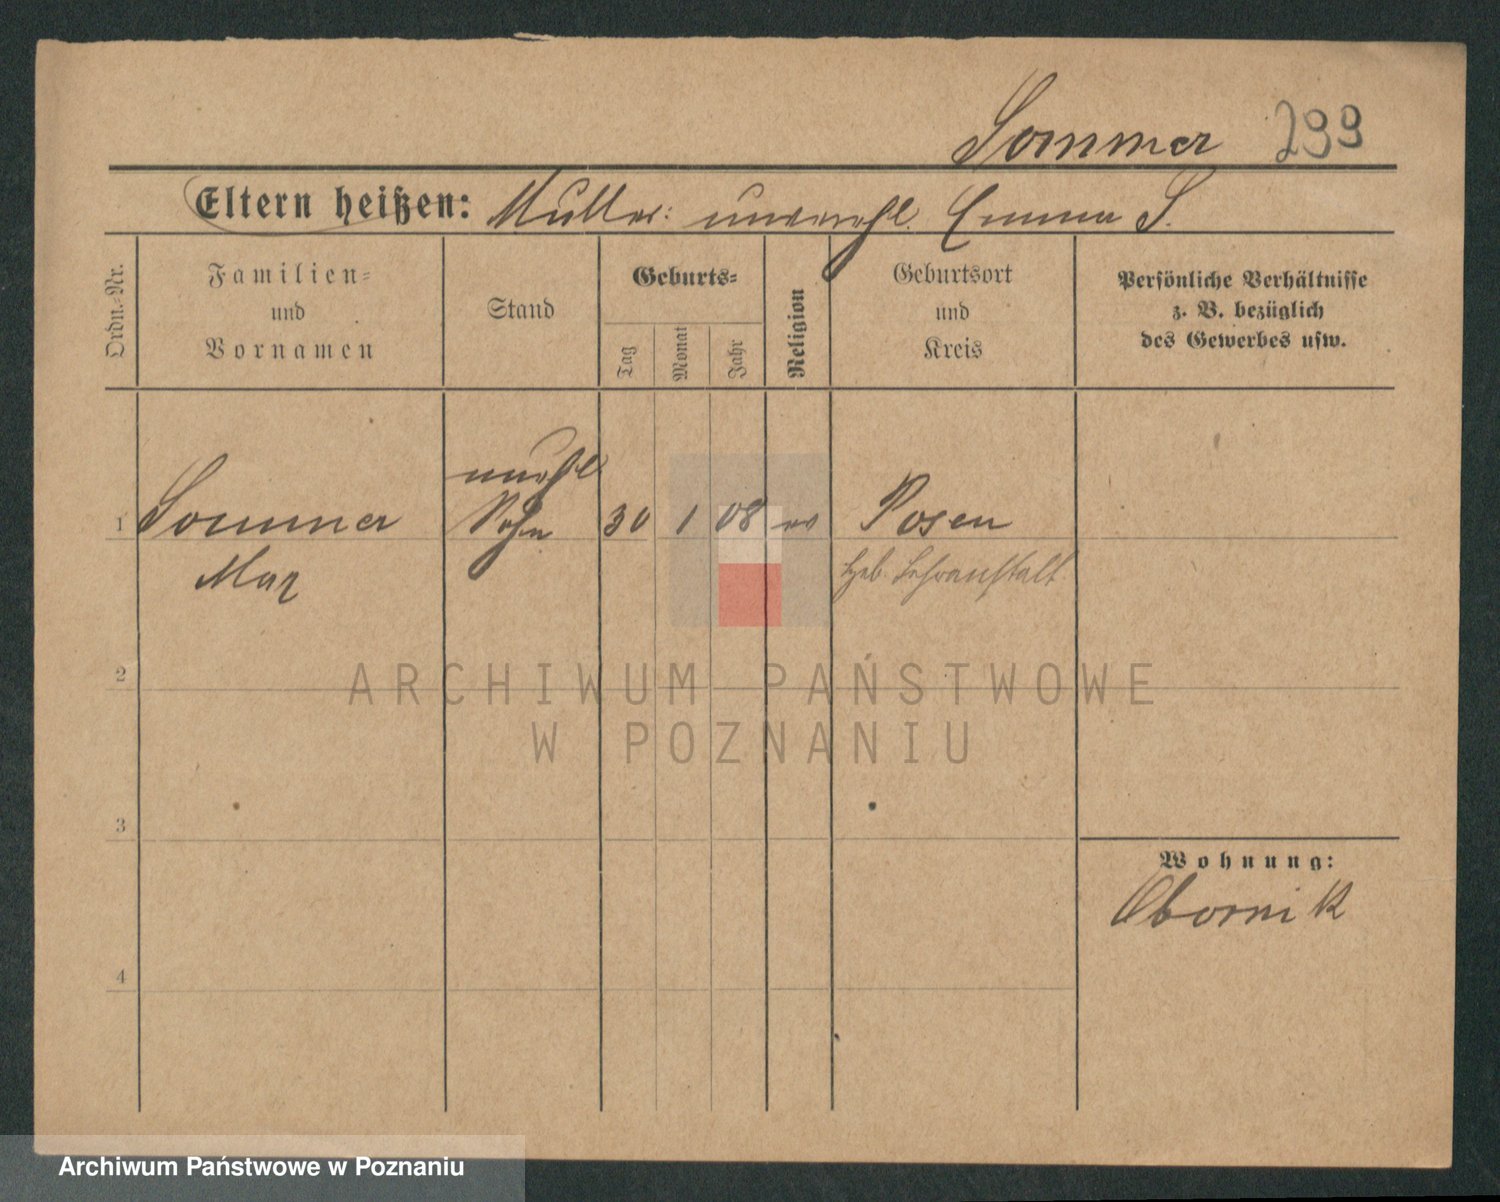 Sommer 299
Eltern heißen: Mutter: unverehl. Emma S.
Ordn.-Nr.
Familien-
und
Vornamen
Stand
Geburts-
Tag
Monat
Jahr
Religion
Geburtsort
und
Kreis
Persönliche Verhältnisse
z. B. bezüglich
des Gewerbes usw.
unehl
1 Sommer Sohn 30 1 08 ev Posen
Max Heb. Lehranstalt
ARCHIWUM PAŃSTWOWE
W POZNANIU
2
3
Wohnung:
Obornik
4
Archiwum Państwowe w Poznaniu